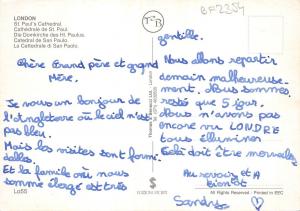 LONDON
St. Paul's Cathedral.
Cathédrale de St. Paul.
Die Domkirche des Hl. Paulus.
Catedral de San Paulo.
La Cattedrale di San Paolo.
Chère Grand père et grand
Mère.
Je vous un bonjour de
l'Angleterre où le ciel n'est
pas bleu.
Mais les visites sont formi-
dables.
Et la famille où nous
somme élogé est très
Lo55
gentille.
Nous allons repartir
demain malheureuse-
ment. Nous sommes
resté que 5 jour.
Nous n'avons pas
encore vu LONDRE
tous illuminer
Celà doit être merveileu
Au revoir et A
bientôt
Sandra
BF2354
Printed in EEC